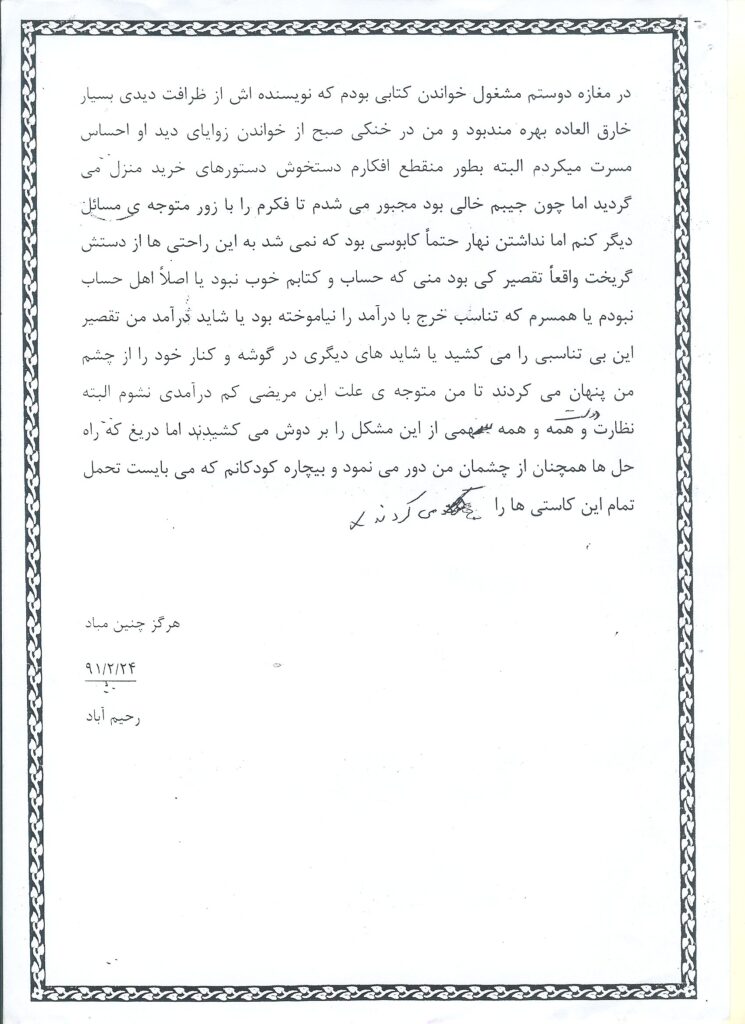 در مغازه دوستم مشغول خواندن کتابی بودم که نویسنده اش از ظرافت دیدی بسیار
خارق العاده بهره مندبود و من در خنکی صبح از خواندن زوایای دید او احساس
مسرت میکردم البته بطور منقطع افکارم دستخوش دستورهای خرید منزل می
گردید اما چون جیبم خالی بود مجبور می شدم تا فکرم را با زور متوجه ی مسائل
دیگر کنم اما نداشتن نهار حتماً کابوسی بود که نمی شد به این راحتی ها از دستش
گریخت واقعاً تقصیر کی بود منی که حساب و کتابم خوب نبود یا اصلاً اهل حساب
نبودم یا همسرم که تناسب خرج با درآمد را نیاموخته بود یا شاید درآمد من تقصیر
این بی تناسبی را می کشید یا شاید های دیگری در گوشه و کنار خود را از چشم
من پنهان می کردند تا من متوجه ی علت این مریضی کم درآمدی نشوم البته
دولت
نظارت و همه و همه سهمی از این مشکل را بر دوش می کشیدند اما دریغ که راه
حل ها همچنان از چشمان من دور می نمود و بیچاره کودکانم که می بایست تحمل
تمام این کاستی ها را می کردند
هرگز چنین مباد
۹۱/۲/۲۴
رحیم آباد